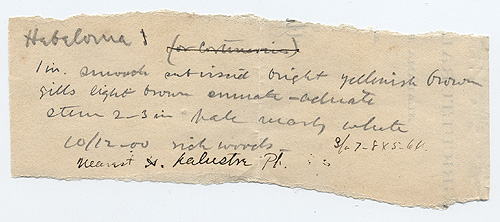 Hebeloma ! (or Cortinarius)
1 in. smooth subviscid bright yellowish brown
gills light brown emarg -adnate
stem 2-3 in pale nearly white
10/12-00 rich woods
nearest H. palustre Pk.